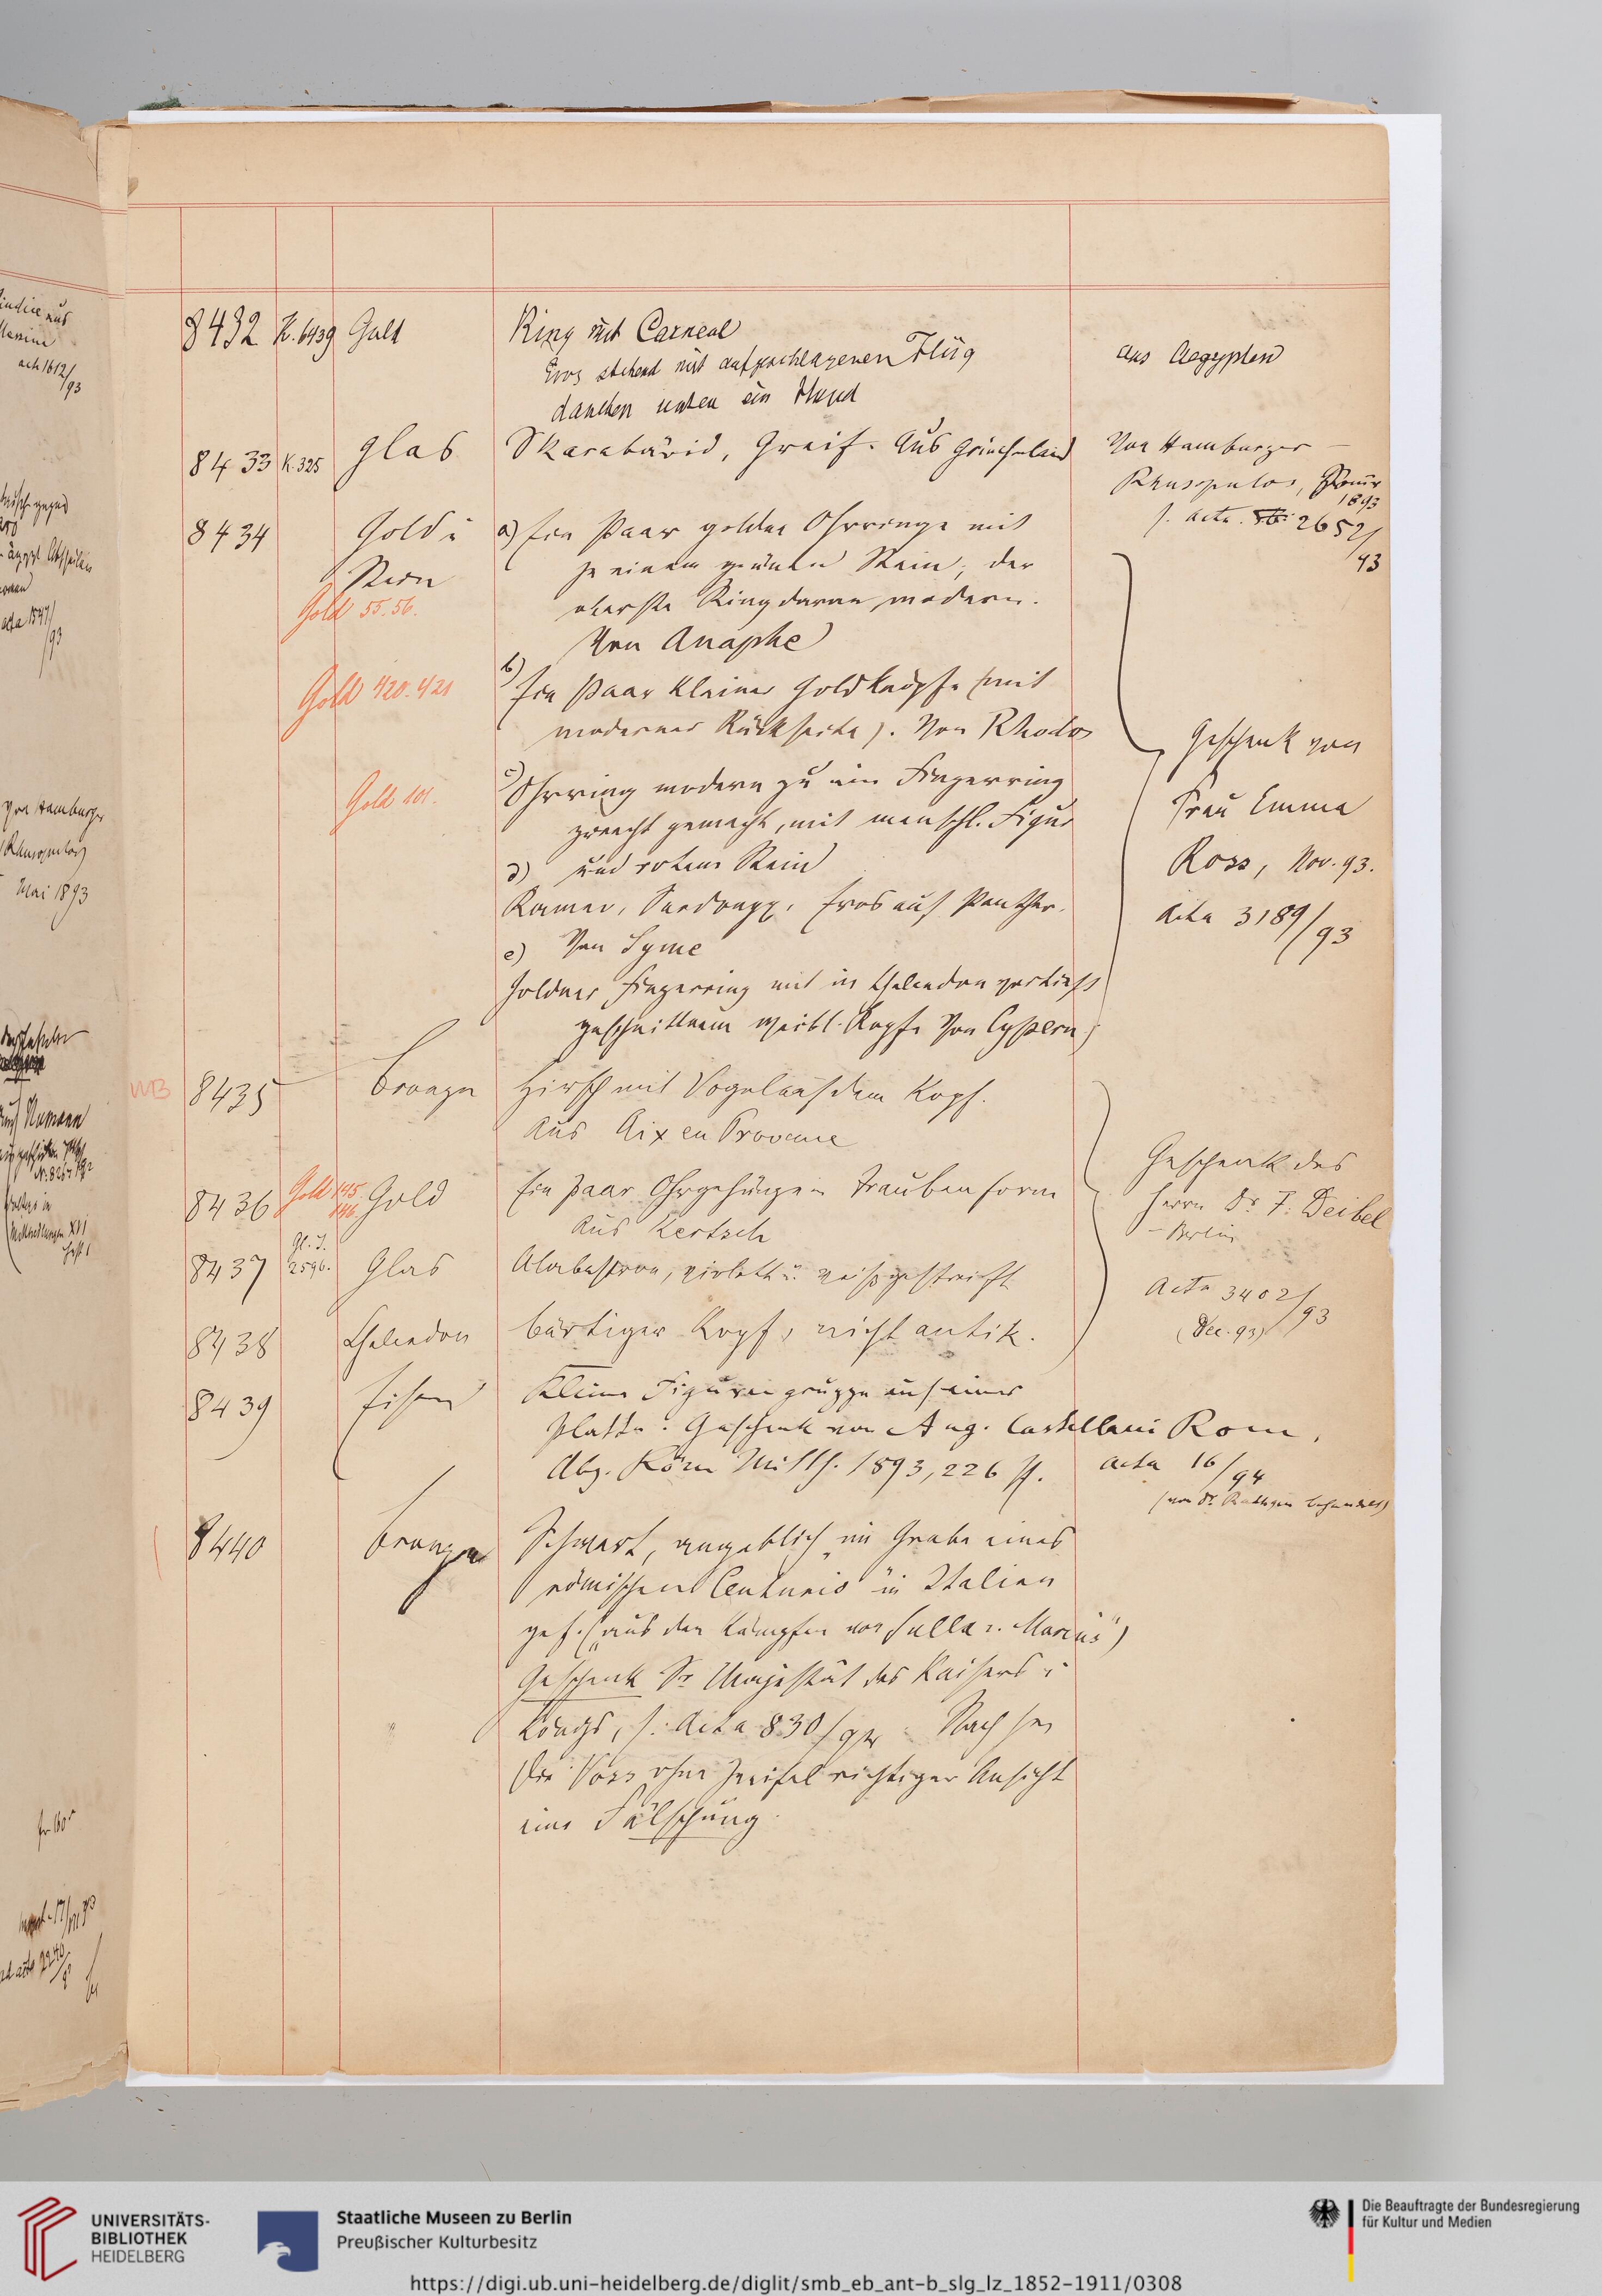 8432 K. 6439 Gold Ring mit Carneol
Eros stehend mit aufgeschlagenen Flüg
daneben unten ein Hund
aus Aegypten
8433 K. 325 Glas Skarabäoid, Greif. Aus Griechenland
Von Hamburger –
Rhusopulos,
1893
s. Acta 2652/93
8434 Gold u
Stein
Gold 55. 56.
a) Ein Paar goldene Ohrringe mit
je einem grünen Stein, der
oberste Ring daran modern.
Von Anaphe
Gold 420. 421
b) Ein Paar kleiner Goldknöpfe (mit
moderner Rückseite). Von Rhodos
Gold 101.
c) Ohrring modern zu ein Fingerring
zurecht gemacht, mit menschl. Figur
und rotem Stein
d)
Kamee, Sardonyx, Eros auf Panther.
Von Syme
e)
Goldner Fingerring mit in Chalcedon vertieft
geschnittenem weibl. Kopfe Von Cypern
Geschenk von
Frau Emma
Ross, Nov. 93.
Acta 3189/93
8435 Bronze Hirsch mit Vogel auf dem Kopf.
Aus Aix en Provence
8436 Gold 145. 146. Gold Ein Paar Ohrgehänge in Traubenform
Aus Kertsch
8437 Gl. I. 2596. Glas Alabastron, violett u. weiß gestreift
8438 Chalcedon bärtiger Kopf, nicht antik.
Geschenk des
Herrn Dr. F. Deibel
– Berlin
Acta 3402/93
(Dec. 93)
8439 Eisen Kleine Figurengruppe auf einer
Platte. Geschenk von Aug. Castellani Rom.
Abg. Röm Mitth. 1893, 226 ff.
Acta 16/94
(von Dr. Rathgen behandelt)
8440 Bronze Schwert, angeblich „im Grabe eines
römischen Centurio“ in Italien
gef. („aus den Kämpfen von Sulla u. Marius“)
Geschenk Sr Majestät des Kaisers u
Königs, s. Acta 830/94 Nach
Voss ohne Zweifel richtiger Ansicht
eine Fälschung.
acta 1612/93
acta 1547/93
von Hamburger
Mai 1893
UNIVERSITÄTS-
BIBLIOTHEK
HEIDELBERG
Staatliche Museen zu Berlin
Preußischer Kulturbesitz
Die Beauftragte der Bundesregierung
für Kultur und Medien
https://digi.ub.uni-heidelberg.de/diglit/smb_eb_ant-b_slg_lz_1852-1911/0308